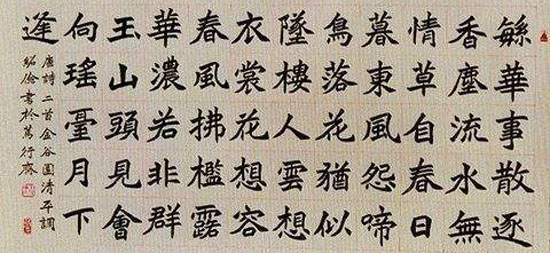 緐華事散逐
香塵流水無
情草自春日
暮東風怨啼
鳥落花猶似
墜樓人雲想
衣裳花想容
春風拂檻露
華濃若非群
玉山頭見會
向瑤臺月下
逢
唐詩二首金谷園清平調
紹儉書於篤行齋